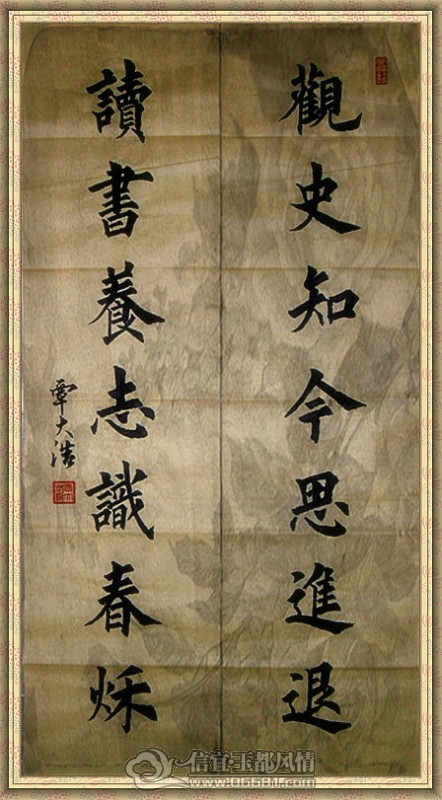 觀史知今思進退
讀書養志識春秌
覃大浩
信宜玉都风情
www.06681.com